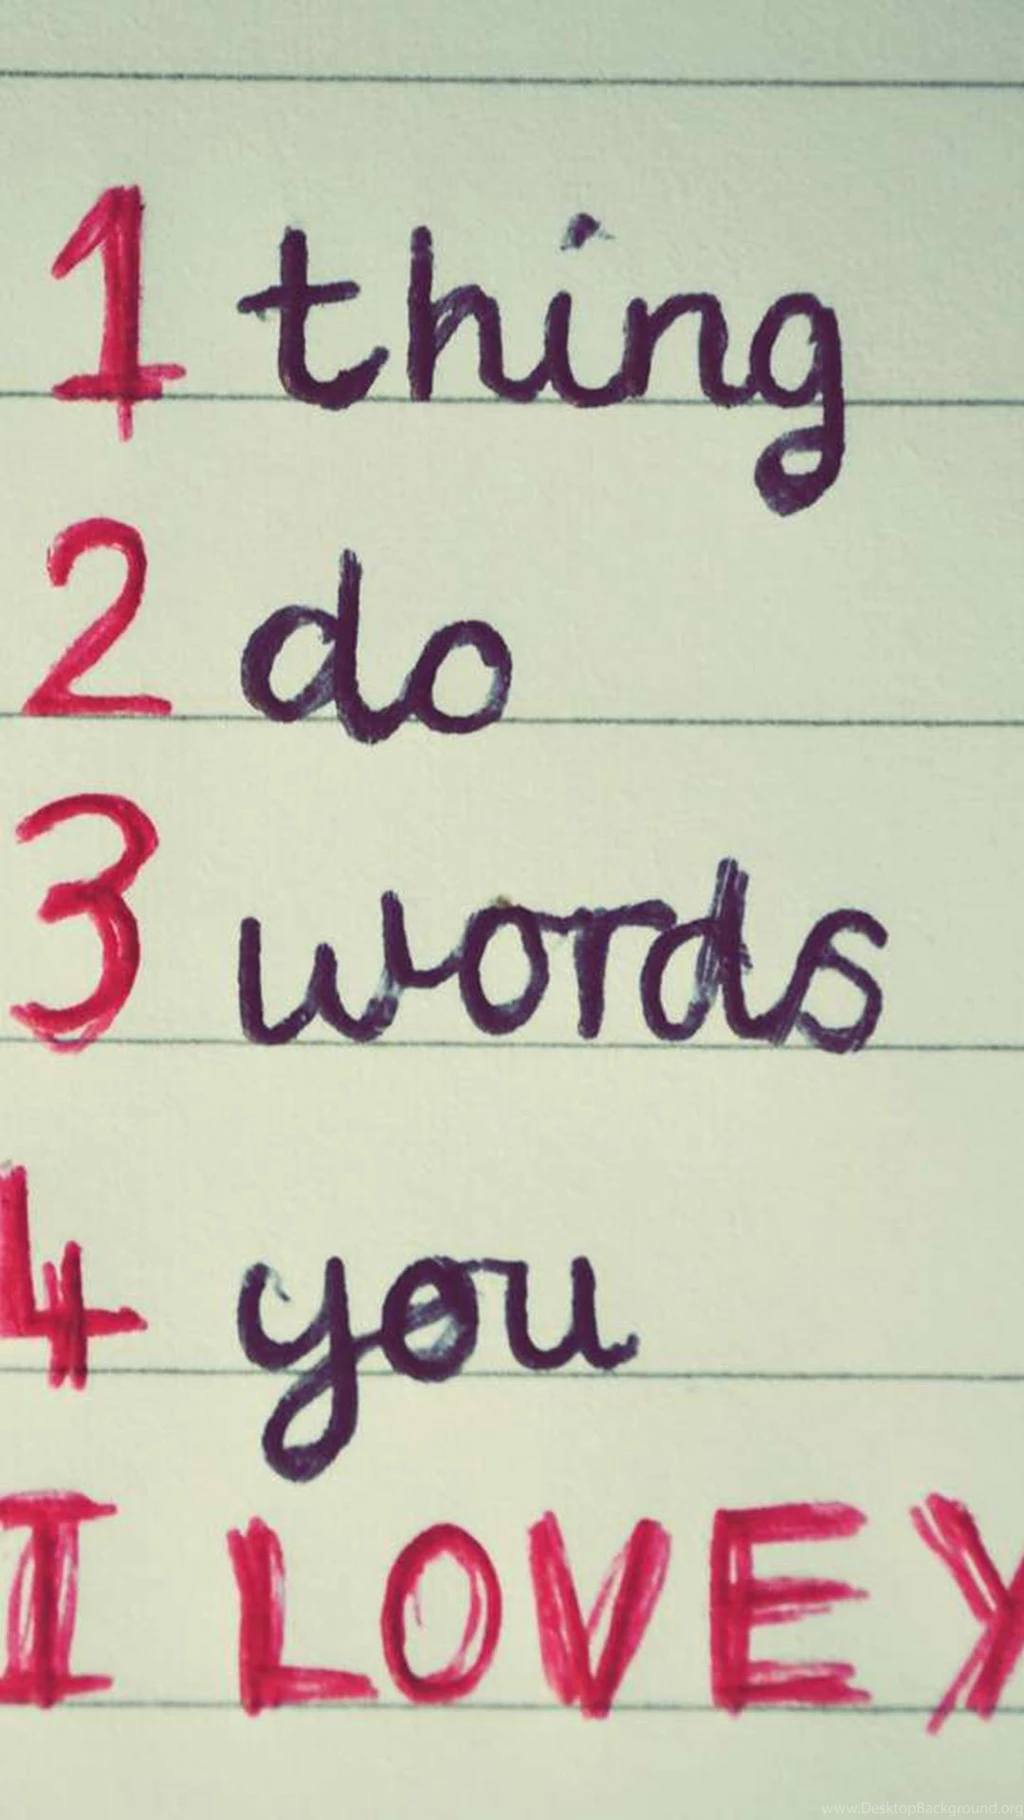 1 thing
2 do
3 words
4 you
I LOVE Y
www.DesktopBackground.org